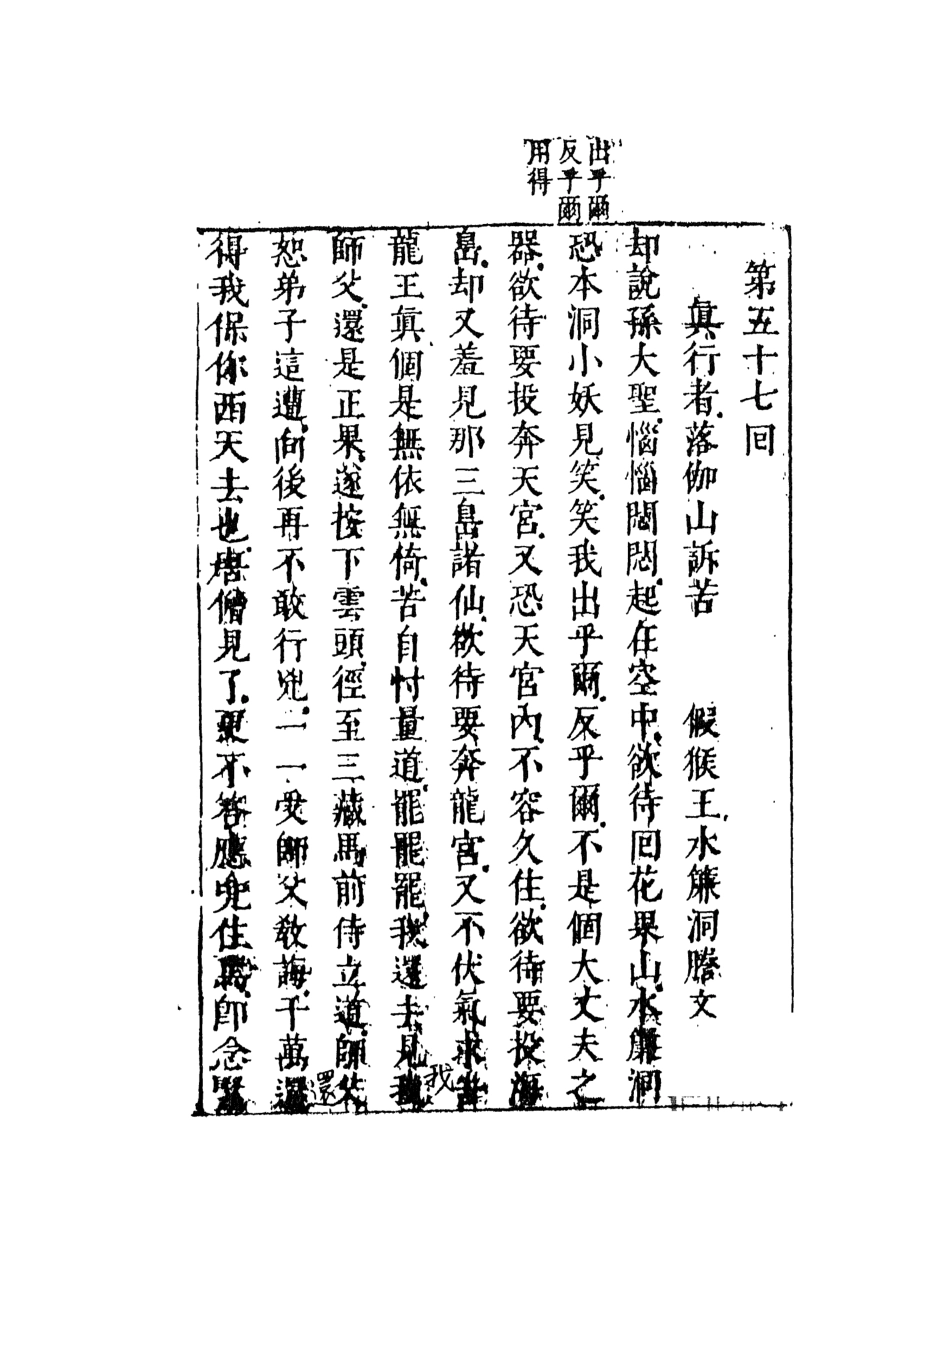 出乎爾
反乎爾
用得
第五十七回
眞行者落伽山訴苦　假猴王水簾洞謄文
却說孫大聖惱惱悶悶起在空中欲待回花果山水簾洞
恐本洞小妖見笑笑我出乎爾反乎爾不是個大丈夫之
器欲待要投奔天宮又恐天宮內不容久住欲待要投海
島却又羞見那三島諸仙欲待要奔龍宮又不伏氣求告
龍王眞個是無依無倚苦自忖量道罷罷罷我還去見我
師父還是正果遂按下雲頭徑至三藏馬前侍立道師父
恕弟子這遭向後再不敢行兇一一受師父教誨千萬還
得我保你西天去也唐僧見了更不答應兜住馬即念緊
我
還